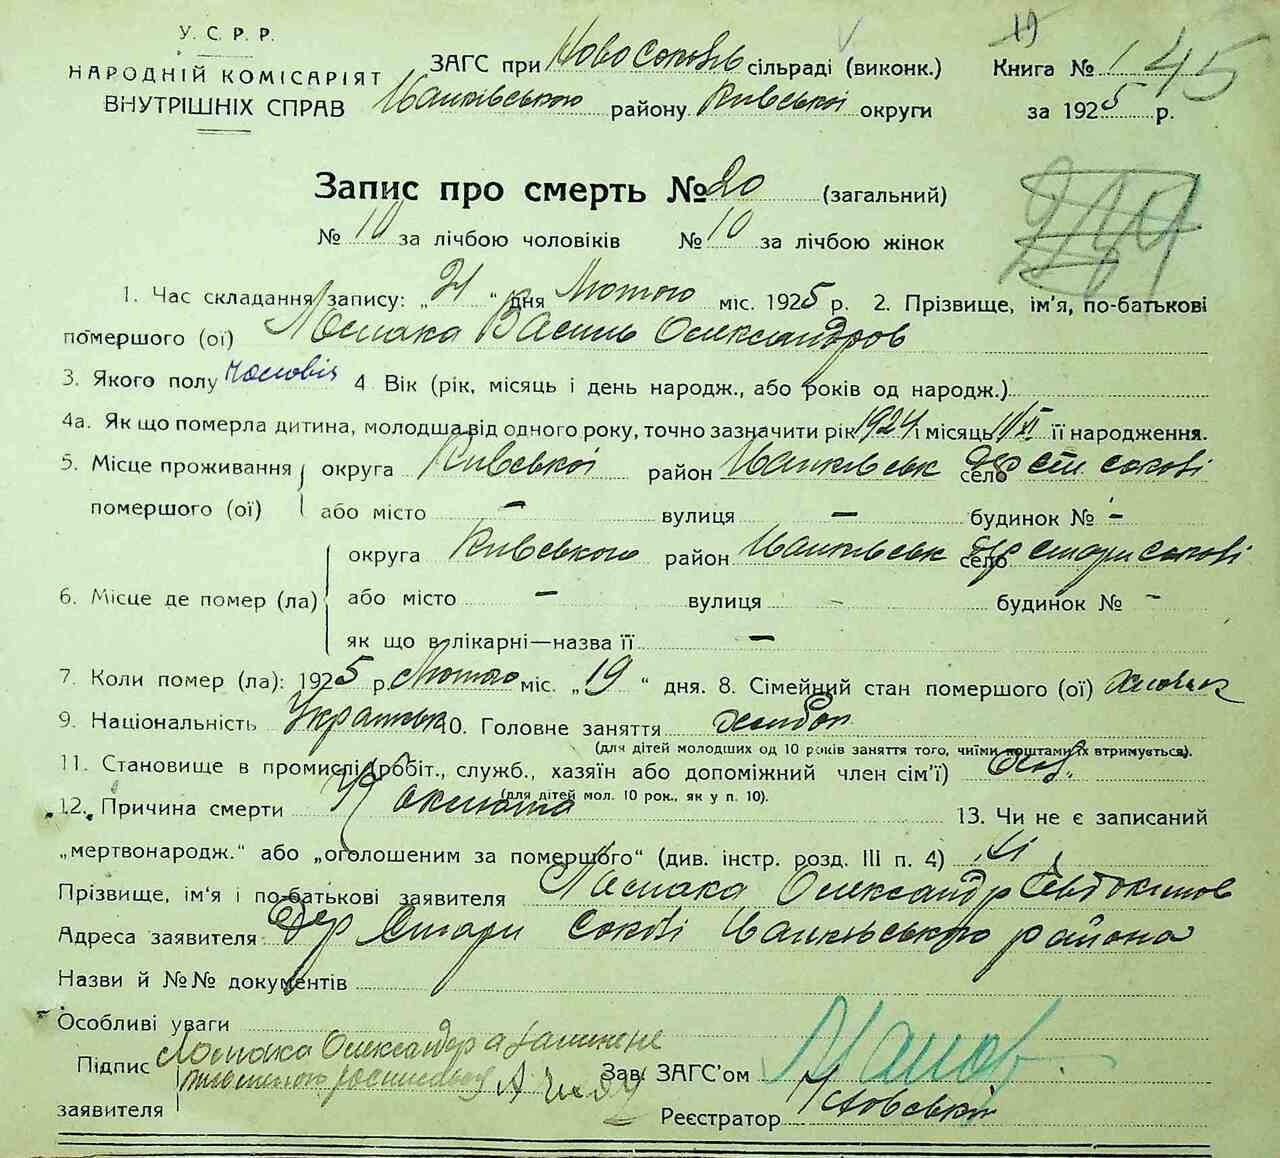 У. С. Р. Р.
НАРОДНІЙ КОМІСАРІЯТ
ВНУТРІШНІХ СПРАВ
ЗАГС при Новосоков сільраді (виконк.)
району Київської округи
Книга № 1 45
за 1925 р.
Запис про смерть № 20 (загальний)
№ 10 за лічбою чоловіків № 10 за лічбою жінок
1. Час складання запису: „21“ дня Лютого міс. 1925 р. 2. Прізвище, ім'я, по-батькові
помершого (ої) Ломака Василь Олександров
3. Якого полу чоловіч 4 Вік (рік, місяць і день народж., або років од народж.)
4а. Як що померла дитина, молодша від одного року, точно зазначити рік 1924 і місяць її народження.
5. Місце проживання помершого (ої) округа Київської район село сокові
або місто – вулиця – будинок № –
6. Місце де помер (ла) округа Київського район село Стари сокові
або місто – вулиця – будинок № –
як що в лікарні—назва її –
7. Коли помер (ла): 1925 р. Лютого міс. „19“ дня. 8. Сімейний стан помершого (ої)
9. Національність 10. Головне заняття хлібор
(для дітей молодших од 10 років заняття того, чиїми коштами їх втримується).
11. Становище в промислі (робіт., служб., хазяїн або допоміжний член сім'ї)
(для дітей мол. 10 рок., як у п. 10).
12. Причина смерти 13. Чи не є записаний
„мертвонародж.“ або „оголошеним за помершого“ (див. інстр. розд. III п. 4)
Прізвище, ім'я і по-батькові заявителя Ломака Олександр Євдокимов
Адреса заявителя дер Стари Сокові района
Назви й №№ документів
Особливі уваги
Підпис заявителя Ломака Олександр а
Зав. ЗАГС'ом
Реєстратор